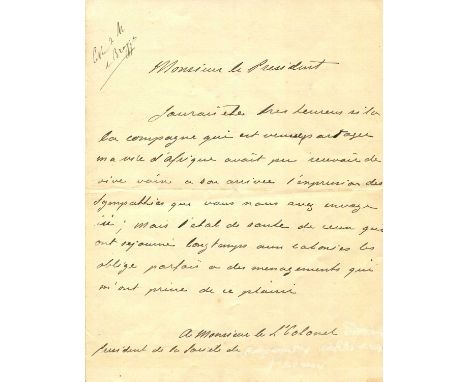 de Brazza
Monsieur le President
J'aurais été tres heureux si la
la compagne qui est venue partager
ma vie d'Afrique avait pu recevoir de
vive voix a son arrivee l'expression des
sympathies que vous nous avez envoye
ici; mais l'etat de sante de ceux qui
ont sejourné longtemps aux colonies les
oblige parfois a des menagements qui
m'ont prive de ce plaisir
A Monsieur le Lt Colonel
President de la Societe de